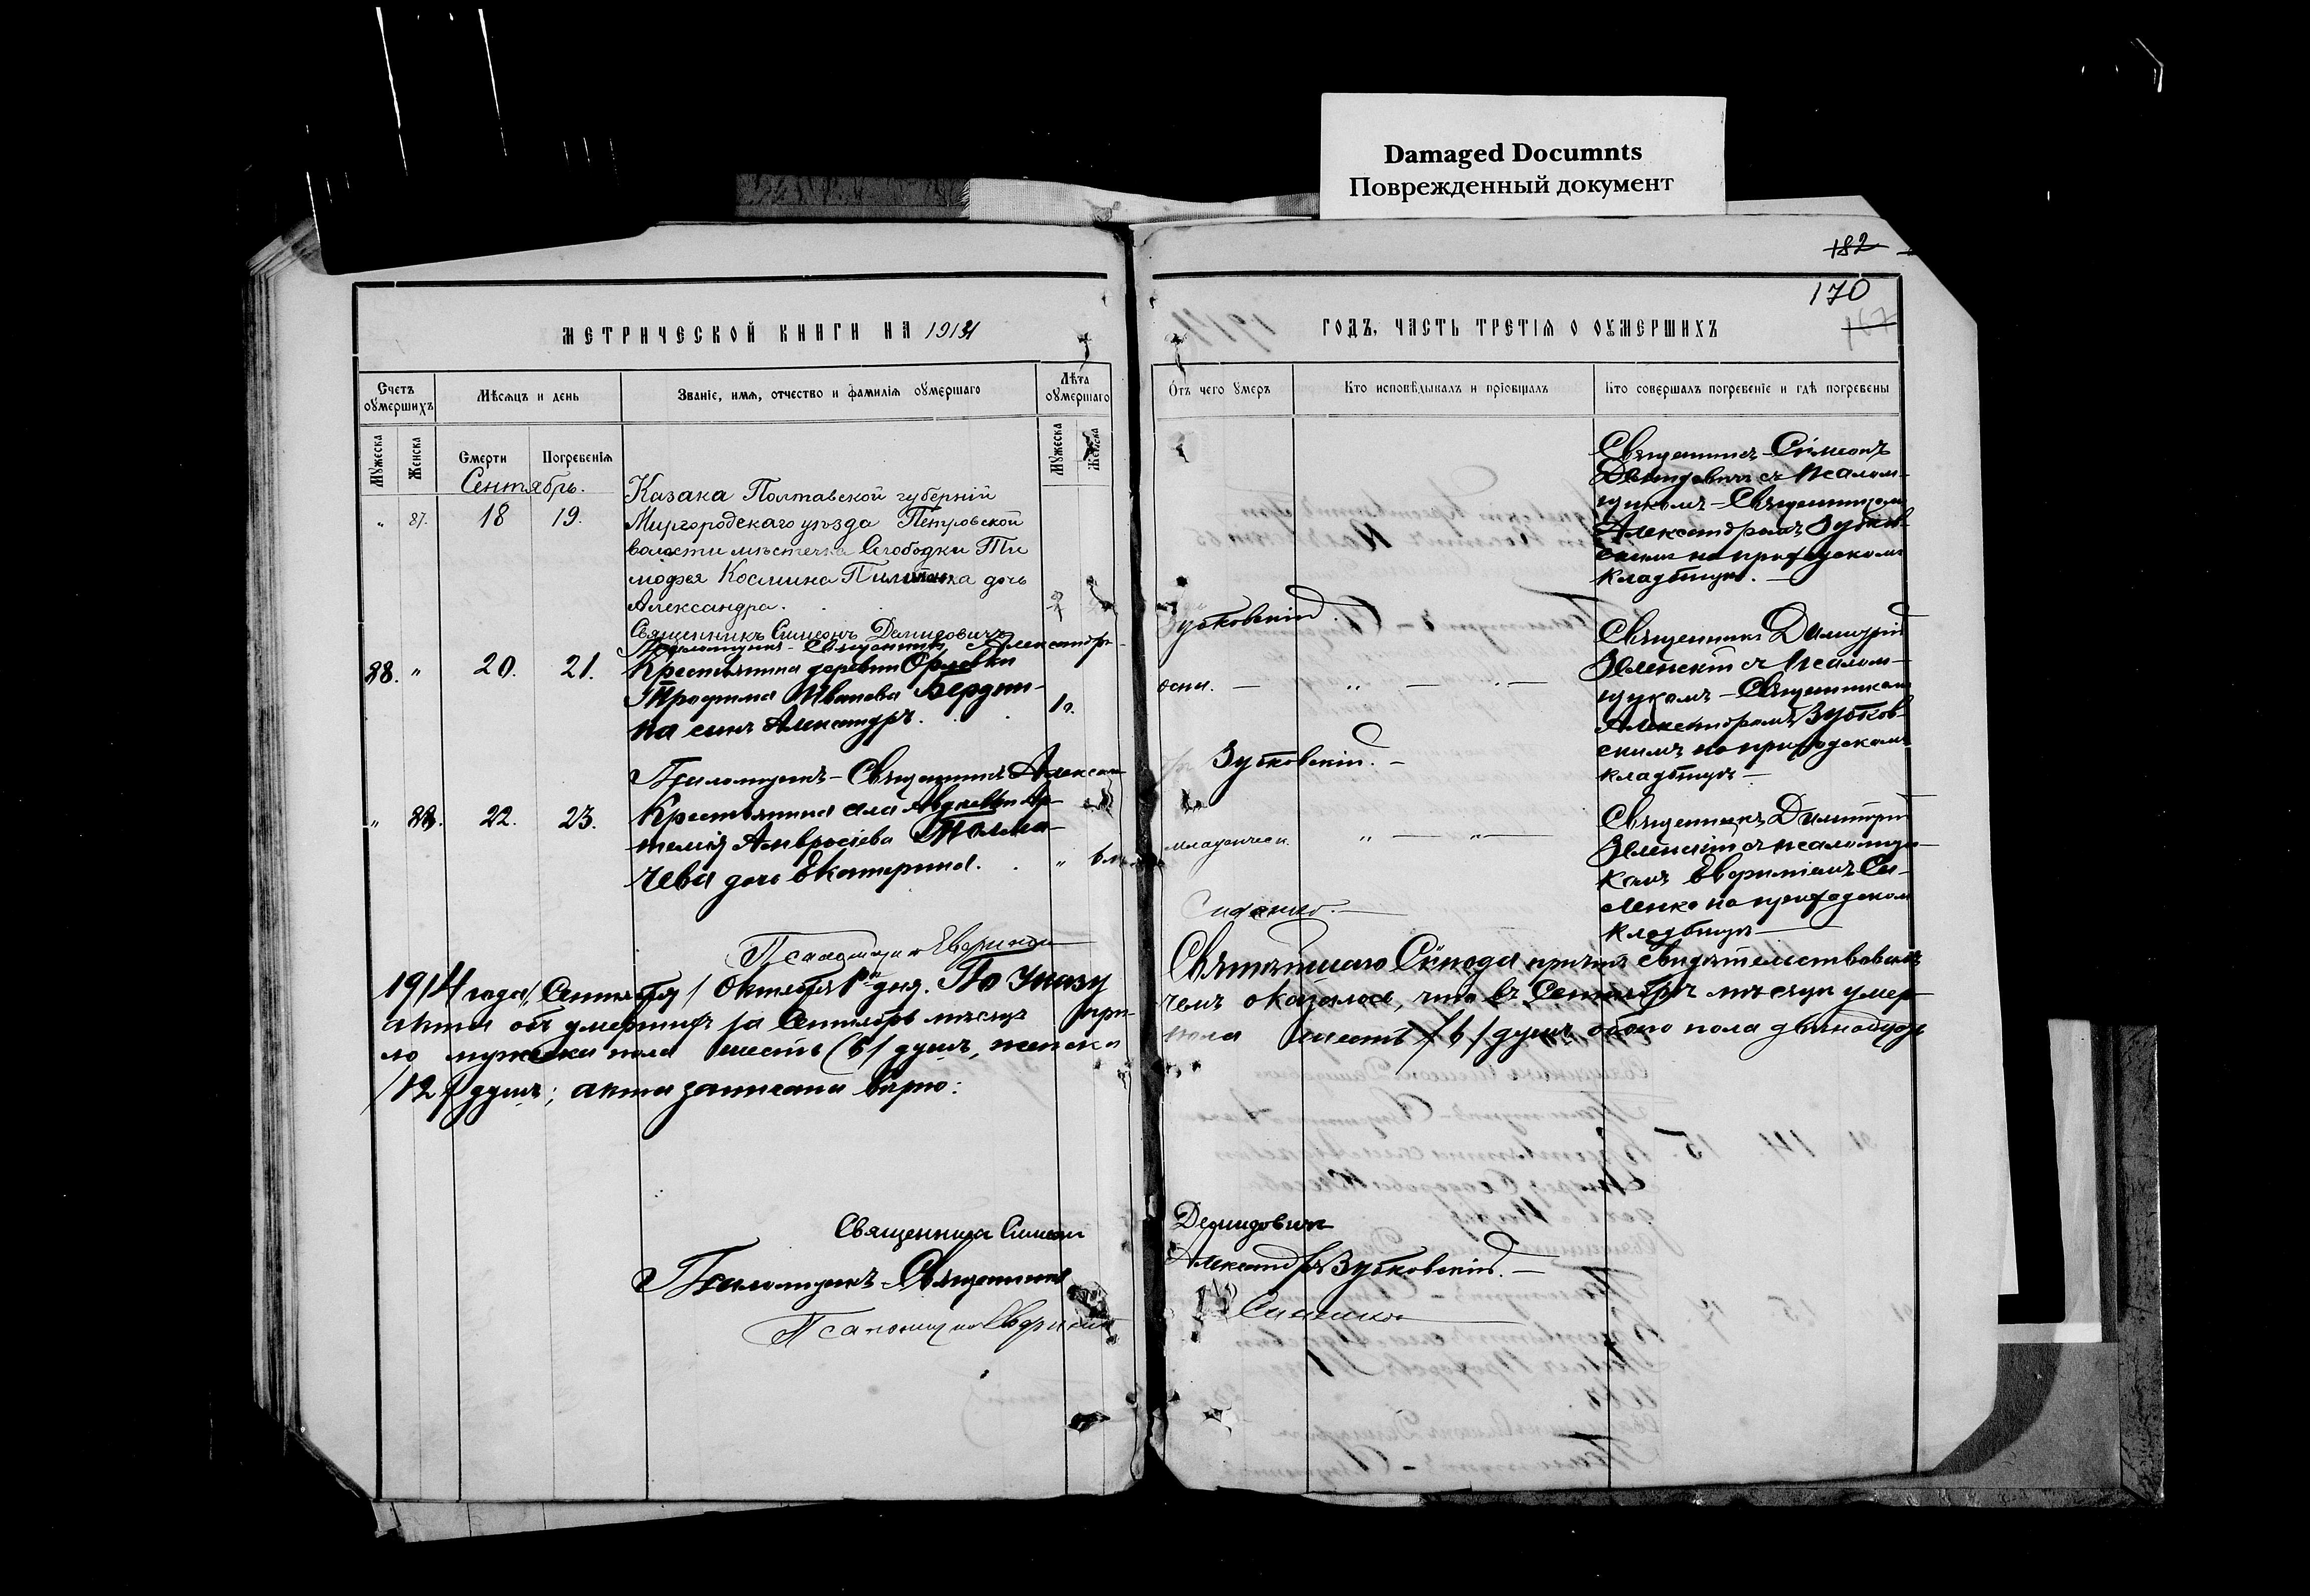 Damaged Documnts
Поврежденный документ
182
170
МЕТРИЧЕСКОЙ КНИГИ НА 1914
ГОДЪ, ЧАСТЬ ТРЕТІѦ О ОУМЕРШИХЪ
Счетъ оумершихъ
Мѣсѧцъ и день
Званіе, имѧ, отчество и фамиліѧ оумершаго
Лѣта оумершаго
Отъ чего умеръ
Кто исповѣдывалъ и пріобщалъ
Кто совершалъ погребеніе и гдѣ погребены
Мужеска
Женска
Смерти
Погребенія
Мужеска
Женска
Сентябрь.
" 87. 18 19.
Казака Полтавской губерніи
Миргородскаго уѣзда Петровской
волости мѣстечка Слободки Ти
мофея Космина дочь
Александра.
Священникъ Симеонъ
Демидовичъ съ псалом-
щикомъ - Священникомъ
Александромъ Зубков-
скимъ на приходскомъ
кладбищѣ. —
Священникъ Симеонъ Демидовичъ
Псаломщикъ - Священникъ Александръ
Зубковскій.
88. " 20. 21.
Крестьянина деревни Орловки
Трофима Иванова Бердни-
ка сынъ Александръ.
1 г.
оспы. — " — " —
Священникъ Димитрій
Зеленскій съ псалом-
щикомъ - Священникомъ
Александромъ Зубков-
скимъ на приходскомъ
кладбищѣ —
Псаломщикъ - Священникъ Александръ
Зубковскій. —
" 88. 22. 23.
Крестьянина села
Амвросіева Толма-
чева дочь Екатерина.
" 6 м.
младенческ. " — " —
Священникъ Димитрій
Зеленскій съ псаломщи-
комъ Евфиміемъ Си-
ленко на приходскомъ
кладбищѣ —
Псаломщикъ Евфимій
1914 года, Сентября / Октября 1го дня. По Указу
Святѣйшаго Сѵнода причтъ свидѣтельствовалъ
акты объ умершихъ за Сентябрь мѣсяцъ при-
чемъ оказалось, что въ Сентябрѣ мѣсяцѣ умер-
ло мужеска пола шесть (6) душъ, женска
пола шесть (6) душъ обоего пола двѣнадцать
(12) душъ; акты записаны вѣрно:
Священникъ Симеонъ
Демидовичъ
Псаломщикъ - Священникъ
Александръ Зубковскій. —
Псаломщикъ Евфимій
Силенко